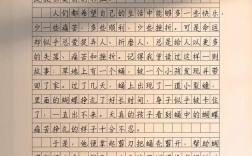 人们都希望自己的生活中能够多一些快乐，
少一些痛苦，多些顺利，少些挫折，可是命运
却似乎总爱捉弄人、折磨人，总是给人以更多
的失落、痛苦和挫折。记得我曾读过这样一则
故事：草地上有一个蛹，被一个小孩发现并带
回了家。过了几天，蛹上出现了一道小裂缝，
里面的蝴蝶挣扎了好长时间，身子似被卡住
了，一直出不来。天真的孩子看到蛹中的蝴蝶
痛苦挣扎的样子十分不忍。
于是，他便拿起剪刀把蛹壳剪开，帮助蝴